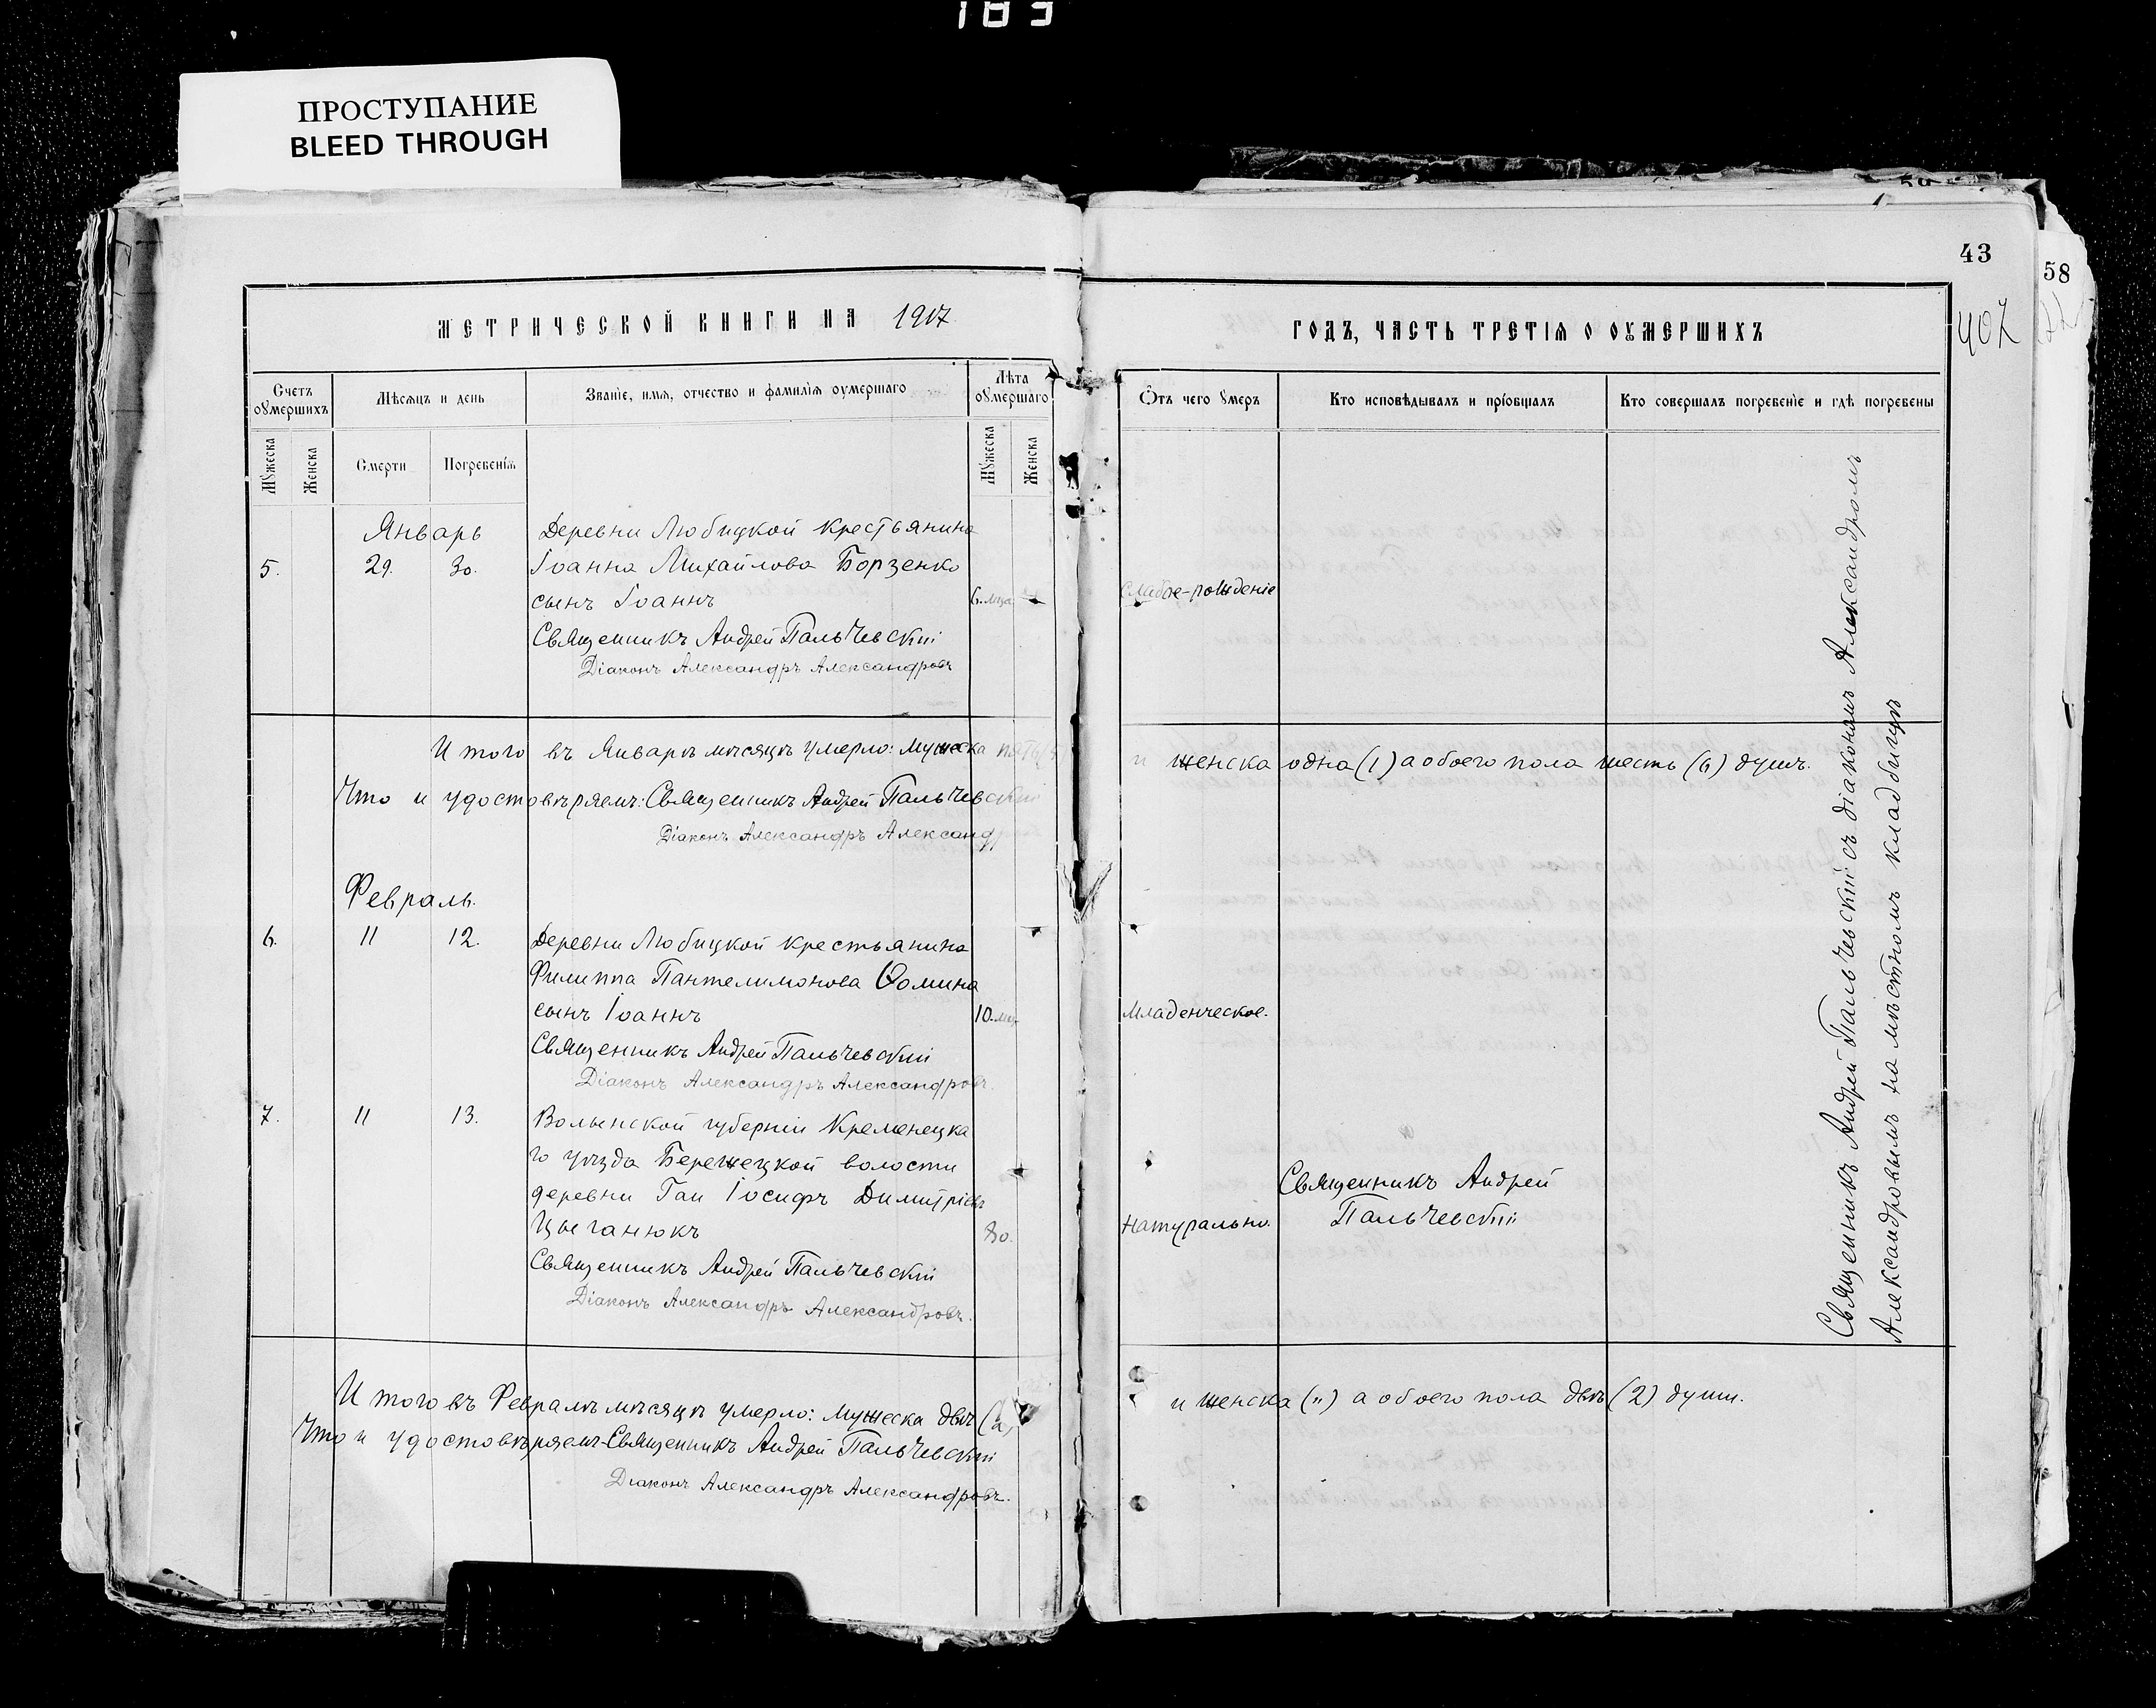 183
ПРОСТУПАНИЕ
BLEED THROUGH
43
58
407
МЕТРИЧЕСКОЙ КНИГИ НА 1917
ГОДЪ, ЧАСТЬ ТРЕТІЯ О ОУМЕРШИХЪ
Счетъ оумершихъ
Мѣсяцъ и день
Званіе, имя, отчество и фамилія оумершаго
Лѣта оумершаго
Отъ чего умеръ
Кто исповѣдывалъ и пріобщалъ
Кто совершалъ погребеніе и гдѣ погребены
Мужеска
Женска
Смерти
Погребенія
Мужеска
Женска
Январь
Деревни Любицкой крестьянина
5. 29. 30. Іоанна Михайлова Борзенко
сынъ Іоаннъ 6. мца. Слабое-рожденіе
Священникъ Андрей Пальчевскій
Діаконъ Александръ Александровъ
Итого въ Январѣ мѣсяцѣ умерло: Мужеска
и женска одна (1) а обоего пола шесть (6) душъ.
Что и удостовѣряемъ: Священникъ Андрей Пальчевскій
Діаконъ Александръ Александр
Февраль.
6. 11 12. Деревни Любицкой крестьянина
Филиппа Пантелимонова Ѳомина
сынъ Іоаннъ 10. мц. Младенческое.
Священникъ Андрей Пальчевскій
Діаконъ Александръ Александровъ.
7. 11 13. Волынской губерніи Кременецка
го уѣзда Бережецкой волости
деревни Гаи Іосифъ Димитріевъ
Цыганюкъ 80. Натурально.
Священникъ Андрей
Пальчевскій
Священникъ Андрей Пальчевскій
Діаконъ Александръ Александровъ.
Священникъ Андрей Пальчевскій съ діакономъ Александромъ
Александровымъ на мѣстномъ кладбищѣ
Итого въ Февралѣ мѣсяцѣ умерло: Мужеска двѣ (2)
и женска (") а обоего пола двѣ (2) души.
Что и удостовѣряемъ-Священникъ Андрей Пальчевскій
Діаконъ Александръ Александровъ.